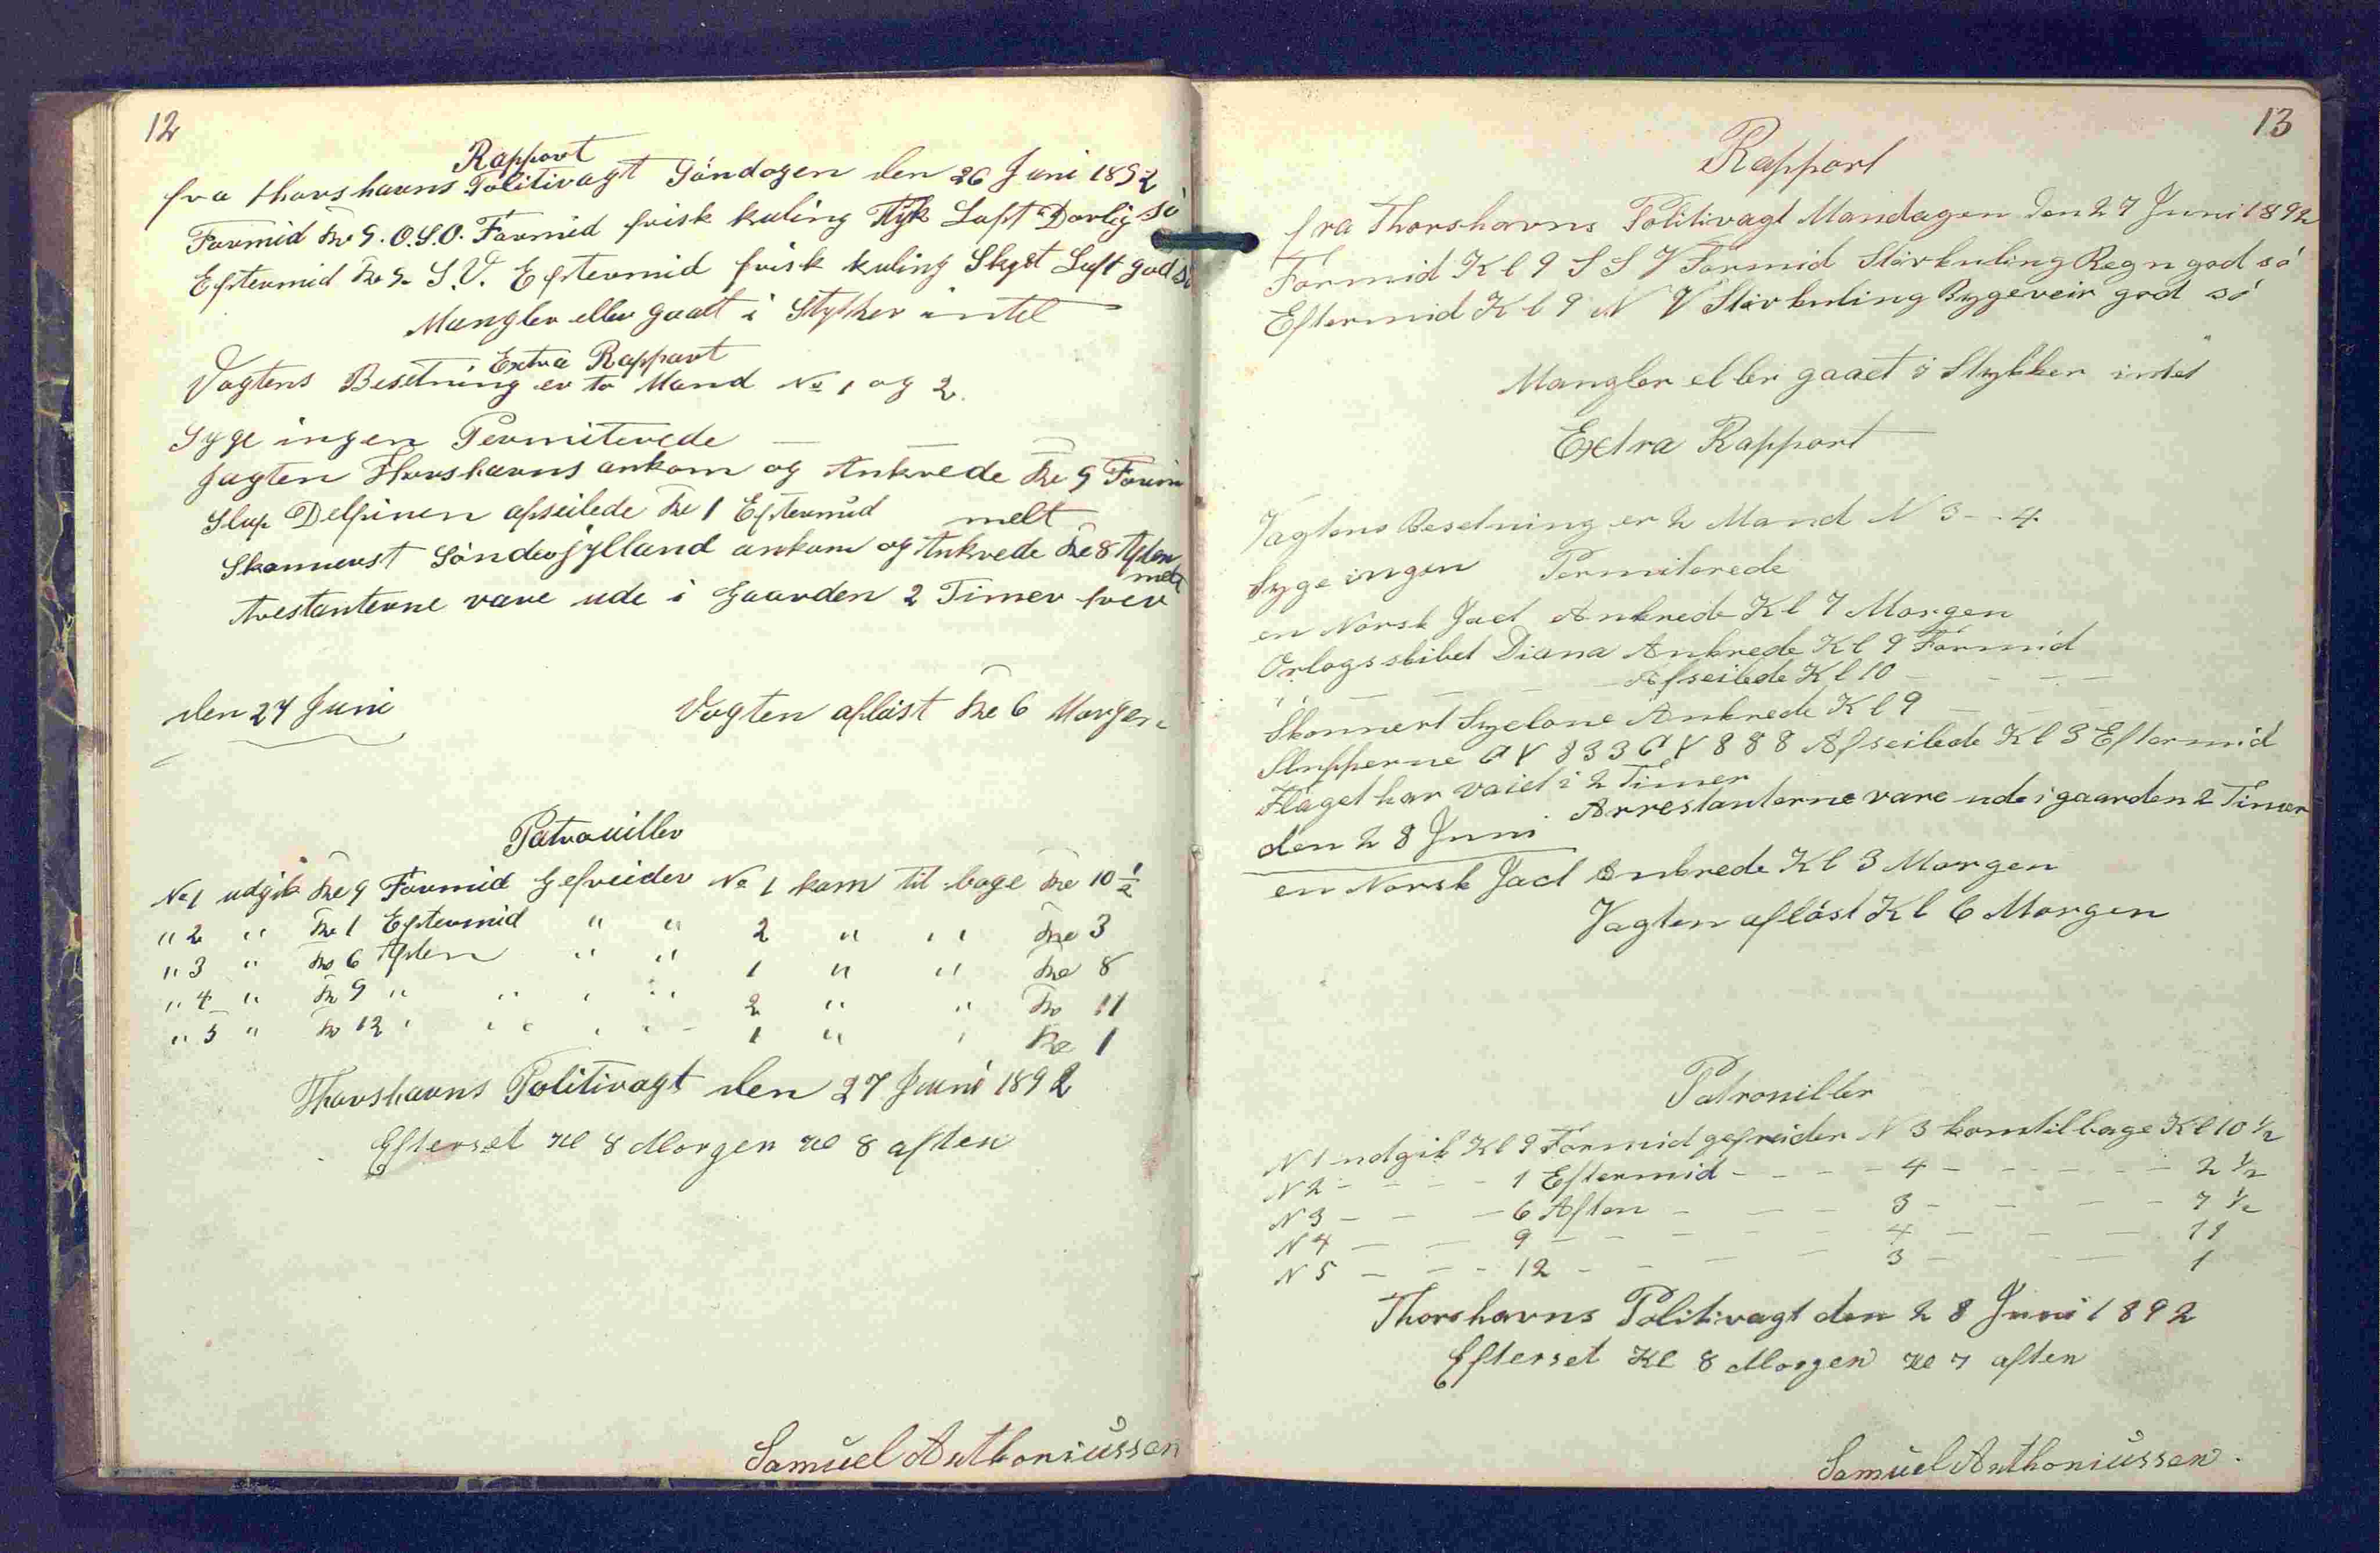 12
Rapport
fra Thorshavns Politivagt Söndagen den 26 Juni 1892
Formid Kl 9. O.S.O. Formid frisk kuling Tÿk Luft Darlig Sö
Eftermid Kl 9. S.V. Eftermid frisk kuling Skyet Luft god Sö
Mangler eller gaaet i Stykker intet
Extra Rapport
Vagtens Besetning er to Mand No 1 og 2.
Syge ingen Permiterede —
Jagten Thorshavns ankom og Ankrede Kl 9 Formi
Slup Delfinen afseilede Kl 1 Eftermid melt
Skonnerst Sönderjylland ankom og Ankrede Kl 8 Aften
melt
Arestanterne vare ude i Gaarden 2 Timer hver
den 27 Juni Vagten aflöst Kl 6 Morgen
Patrouiller
No 1 udgik Kl 9 Formid Gefreider No 1 kom til bage Kl 10 1/2
" 2 " Kl 1 Eftermid " " 2 " " Kl 3
" 3 " Kl 6 Aften " " 1 " " Kl 8
" 4 " Kl 9 " " " " " 2 " " Kl 11
" 5 " Kl 12 " " " " " 1 " " Kl 1
Thorshavns Politivagt den 27 Juni 1892
Efterset Kl 8 Morgen Kl 8 aften
Samuel Anthoniussen
13
Rapport
fra Thorshavns Politivagt Mandagen den 27 Juni 1892
Formid Kl 9 S S V Formid Stivkuling Regn god sö
Eftermid Kl 9 N V Stivkuling Bygeveir god sö
Mangler eller gaaet i Stykker intet
Extra Rapport
Vagtens Besetning er 2 Mand N 3 - . 4.
Syge ingen Permiterede
en Norsk Jact Ankrede Kl 7 Morgen
Orlogsskibet Diana Ankrede Kl 9 Formid
— — — — Afseilede Kl 10 — — — —
Skonnert Ankrede Kl 9 — —
Slupperne GY 833 GY 888 Afseilede Kl 3 Eftermid
Flaget har vaiet i 2 Timer
Arrestanterne vare ude i gaarden 2 Timer
den 28 Juni
en Norsk Jact Ankrede Kl 3 Morgen
Vagten aflöst Kl 6 Morgen
Patrouiller
N 1 udgik Kl 9 Formid gefreider N 3 kom tilbage Kl 10 1/2
N 2 - - - - 1 Eftermid - - - - 4 - - - - - 2 1/2
N 3 - - - 6 Aften - - - - 3 - - - - - 7 1/2
N 4 - - - 9 - - - - - 4 - - - - 11
N 5 - - - 12 - - - - - 3 - - - 1
Thorshavns Politivagt den 28 Juni 1892
Efterset Kl 8 Morgen Kl 7 aften
Samuel Anthoniussen.